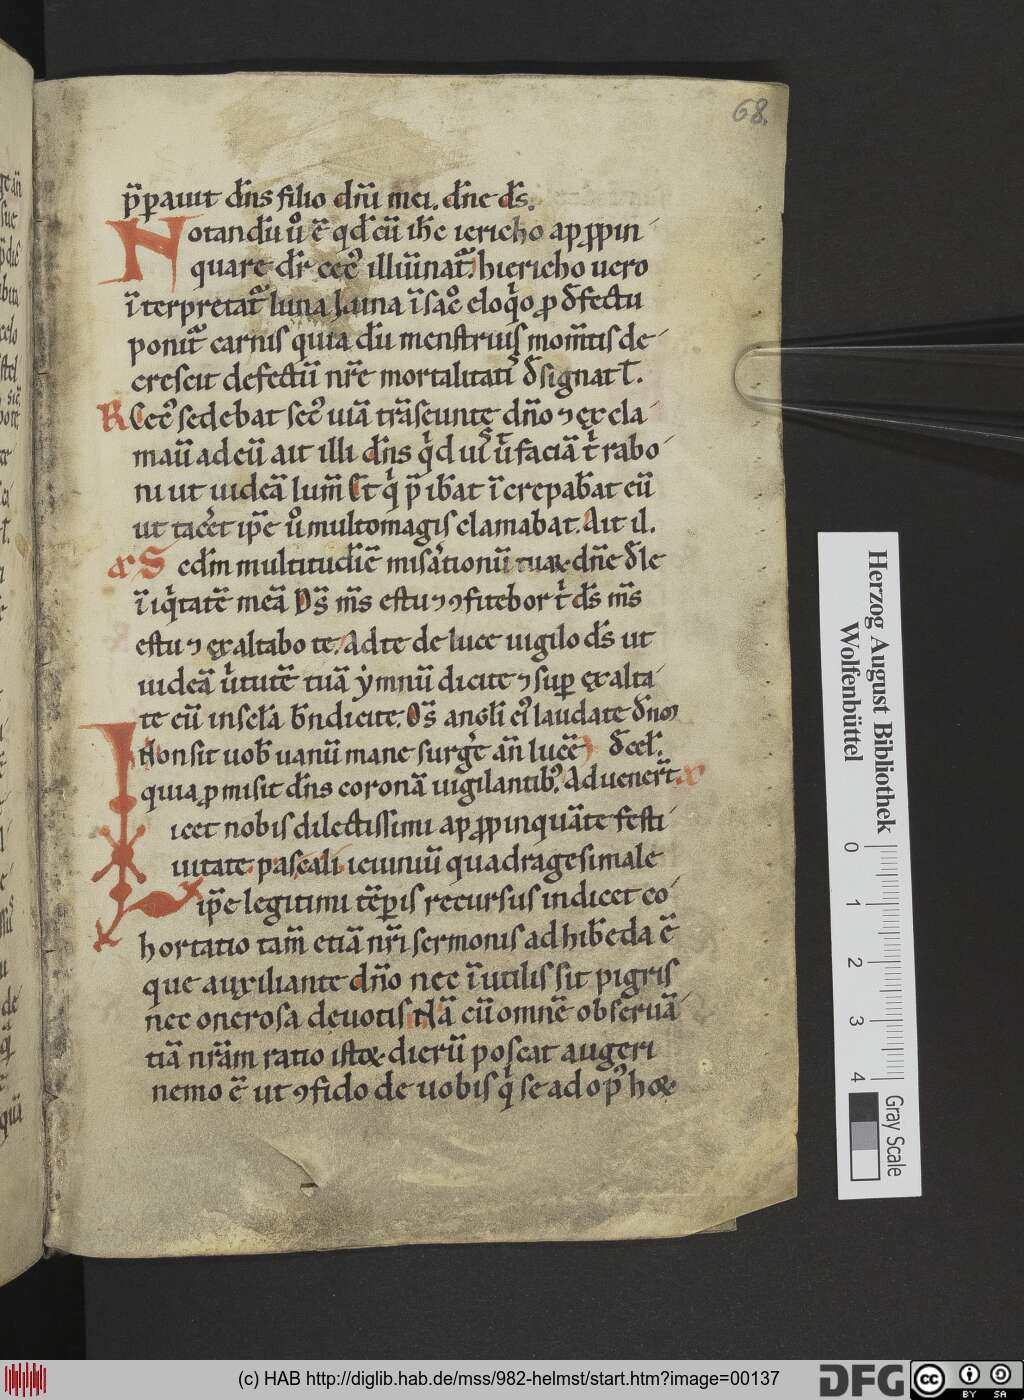 68.
p̄parauit dn̄s filio dn̄i mei. dn̄e ds̄.
Notandū ů ē qd̄ cū ih̄c iericho aproppin
quare dr̄ cec᷒ illūinat᷑. hiericho uero
īterpretat᷑ luna luna ī sac̊ eloq̊o ꝓ d̄fectu
ponit᷑ carnis quia dū menstruis mom̄tis de
crescit defectū nr̄e mortalitati᷒ d̄signat t̄.
R Cec᷒ sedebat sec᷒ uiā trāseunte dn̄o ⁊ excla
mauit̄ ad eū ait illi dn̄s qͥd uis ut̄ faciā tͥ rabo
ni ut uideā lum̄ Et qͥ p̄ibāt īcrepabāt eū
ut tacēt ip̄e ů multomagis clamabat. Ait il.
æ S ecdm̄ multitudīē misatͥonū tuaꝝ dn̄e d̄le
ī iqͥtatē meā Ds̄ ms̄ estu ⁊ ꝯfitebor tͥ ds̄ ms̄
estu ⁊ exaltabo te. Ad te de luce uigilo ds̄ ut
uideā uͥtutē tuā ẏmnū dicite ⁊ suꝑ exalta
te eū in secl̄a bn̄dicite. Os̄ angl̄i ei᷒ laudate dn̄m
Non sit uob̄ uanū mane surgͤe an̄ lucē d̄cel̄.
quia ꝓmisit dn̄s coronā uigilantib᷒. Aduener̄t
icet nobis dilectissimi aproppinquāte festi
uitate pascali ieiuniū quadragesimale
ip̄e legitimi tēꝑis recursus indicet co
hortatio tam̄ etiā nr̄i sermonis adhibēda ē
que auxiliante dn̄o nec īutilis sit pigris
nec onerosa deuotis Nā cū omnē obseruā
tiā nr̄am ratio istoꝝ dierū poscat augeri
nemo ē ut ꝯfido de uobis qͥ se ad op᷒ hoꝝ
Herzog August Bibliothek
Wolfenbüttel
0 1 2 3 4
Gray Scale
(c) HAB http://diglib.hab.de/mss/982-helmst/start.htm?image=00137
DFG
cc BY SA